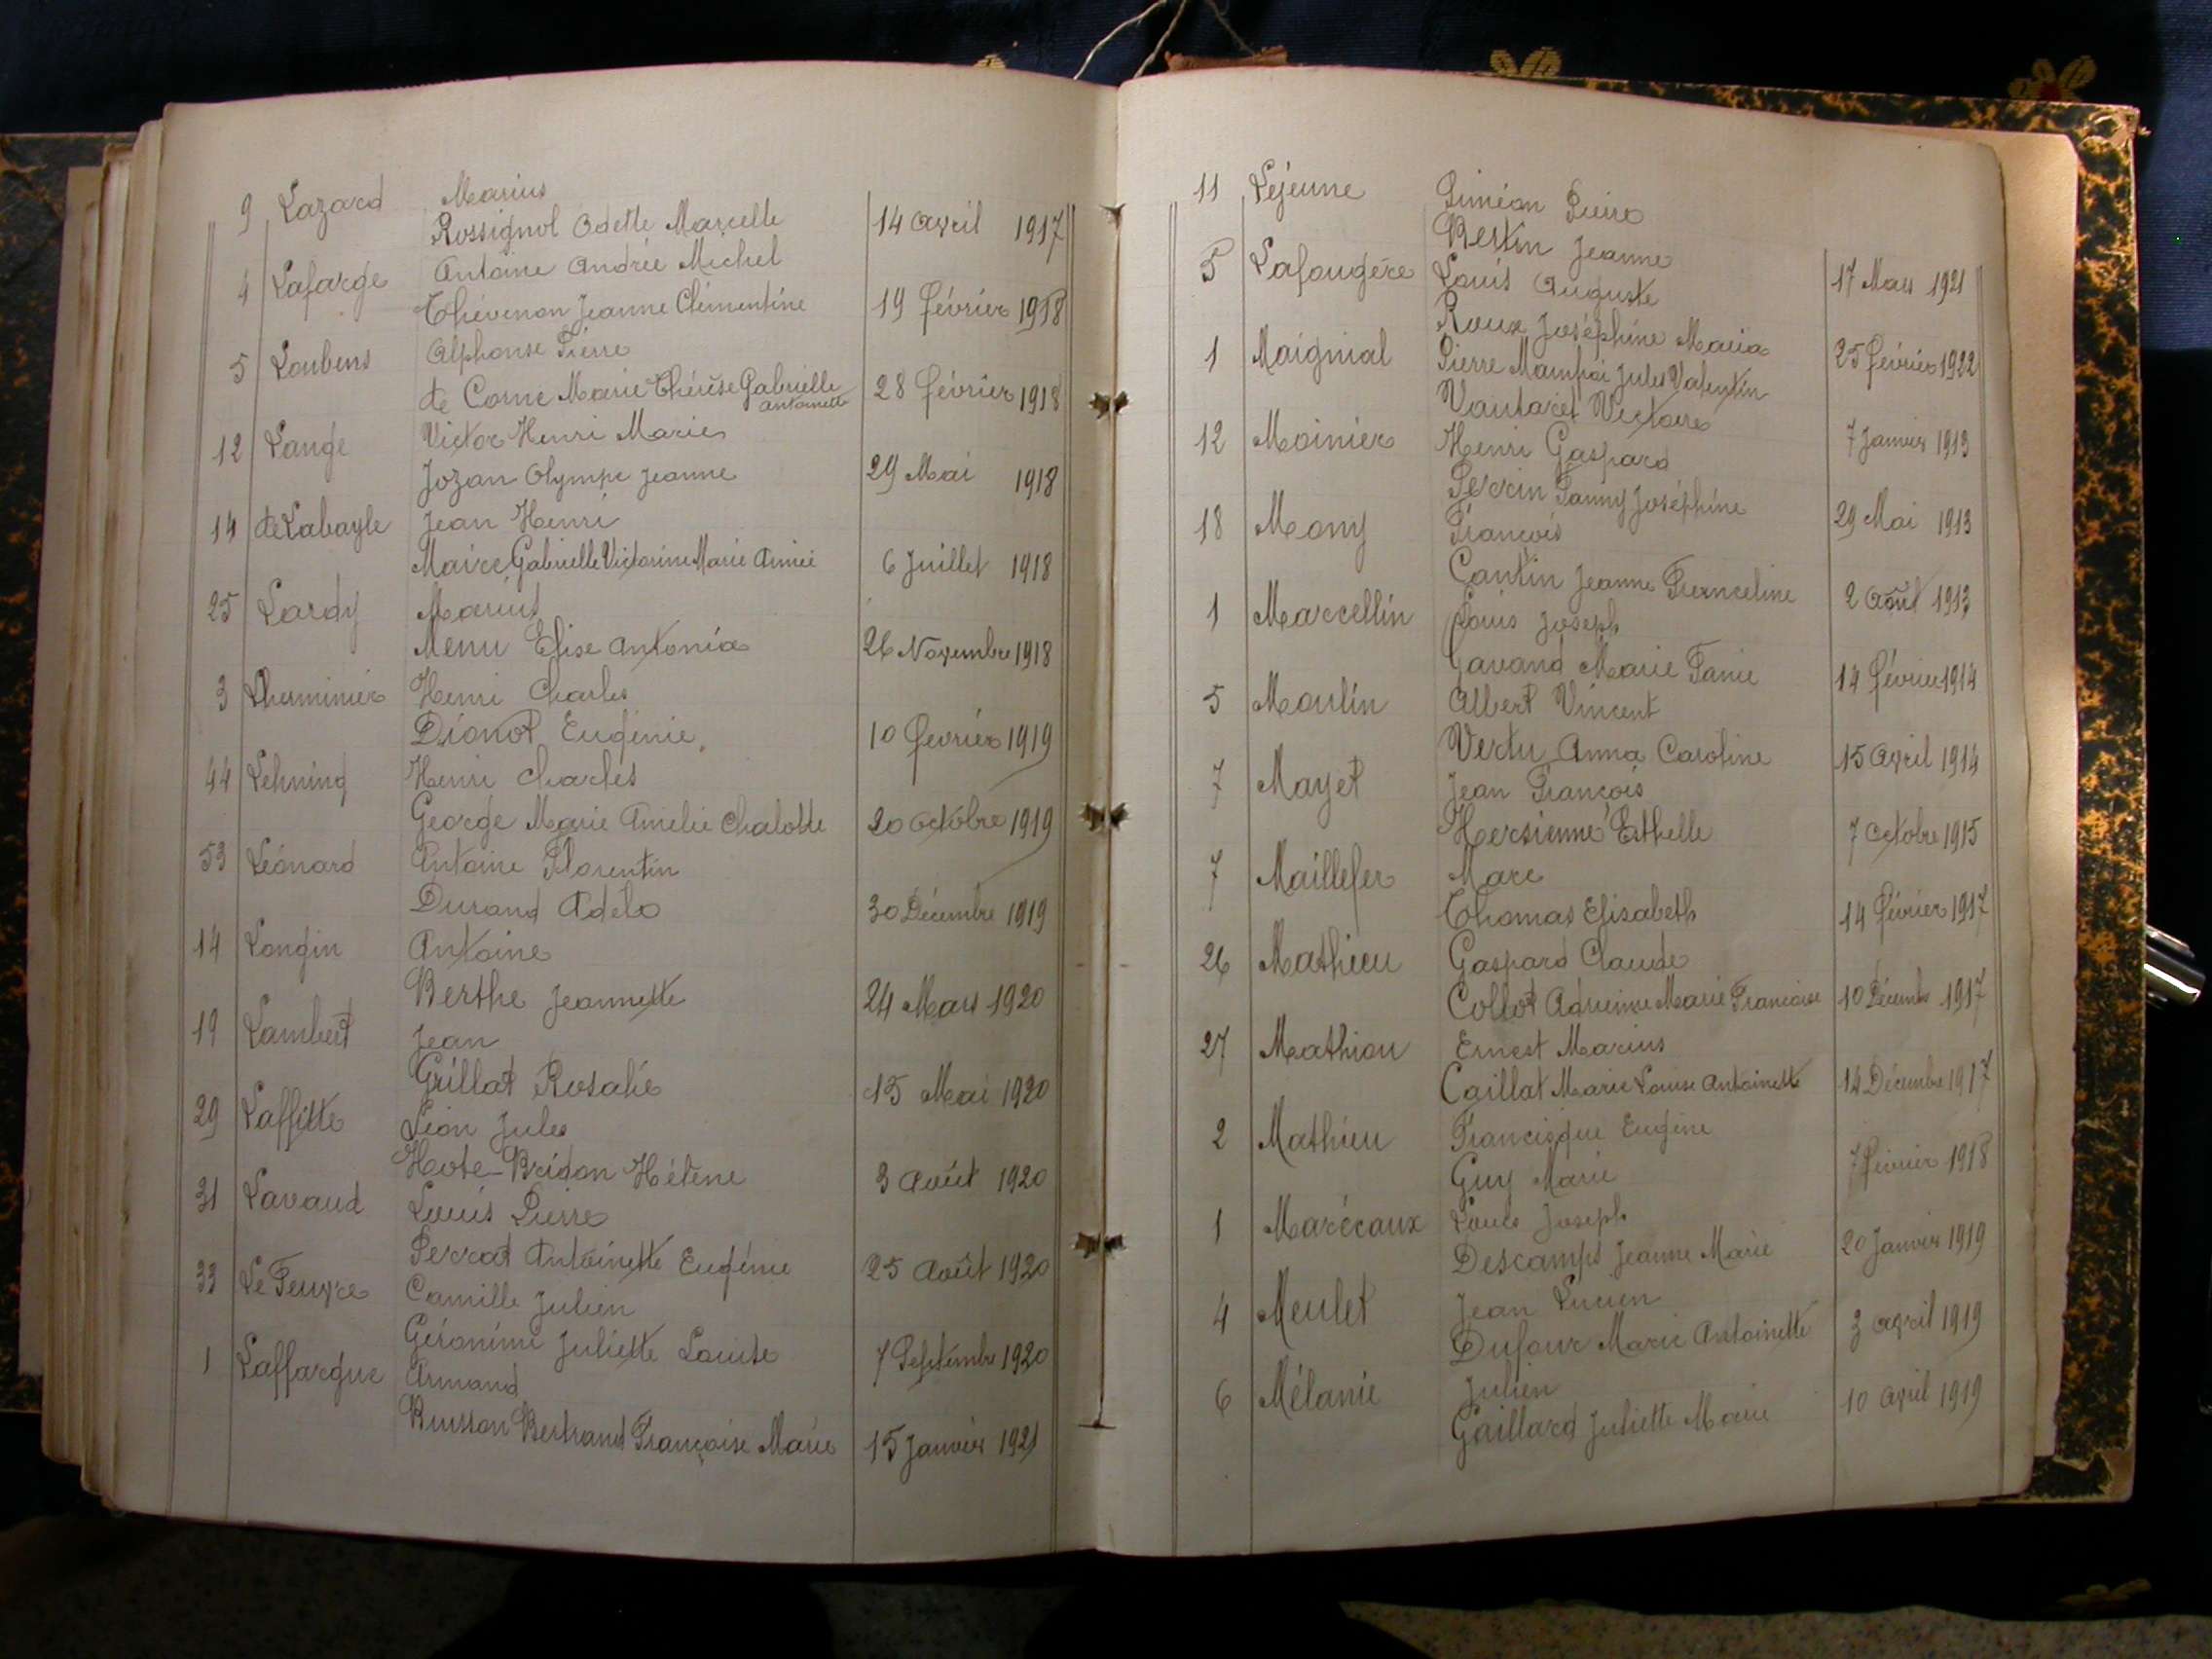 9 Lazard Marius
Rossignol Odette Marcelle 14 Avril 1917
4 Lafarge Antoine André Michel
Thévenon Jeanne Clémentine 19 février 1918
5 Loubens Alphonse Pierre
de Corne Marie Thérèse Gabrielle 28 février 1918
Antoinette
12 Lange Victor Henri Marie
Jozan Olympe Jeanne 29 Mai 1918
14 de Labayle Jean Henri
Maire Gabrielle Victorine Marie Aimée 6 Juillet 1918
25 Lardy Marius
Menu Elise Antonia 26 Novembre 1918
3 Lherminier Henri Charles
Dionot Eugénie 10 février 1919
44 Lehning Henri Charles
George Marie Amelie Chalotte 20 octobre 1919
53 Léonard Antoine Florentin
Durand Adèle 30 Décembre 1919
14 Longin Antoine
Berthe Jeannette 24 Mars 1920
19 Lambert Jean
Grillat Rosalie 15 Mai 1920
29 Laffitte Léon Jules
Hote-Bridon Hélène 3 Août 1920
31 Lavaud Louis Pierre
Perrat Antoinette Eugénie 25 Août 1920
33 Le Feuvre Camille Julien
Géronimi Juliette Louise 7 Septembre 1920
1 Laffargue Armand
Buisson Bertrand Françoise Marie 15 Janvier 1921
11 Lejeune Siméon Pierre
Bertin Jeanne 17 Mars 1921
5 Lafougère Louis Auguste
Roux Joséphine Maria 25 février 1922
1 Maignial Pierre Jules Valentin
Vautaret Victoire 7 Janvier 1913
12 Moinier Henri Gaspard
Perrin Fanny Joséphine 29 Mai 1913
18 Mony François
Cantin Jeanne Franceline 2 Août 1913
1 Marcellin Louis Joseph
Gavand Marie Fanie 14 février 1914
5 Moulin Albert Vincent
Vertu Anna Caroline 15 Avril 1914
7 Mayet Jean François
Hersienne Esthelle 7 octobre 1915
7 Maillefer Marc
Thomas Elisabeth 14 février 1917
26 Mathieu Gaspard Claude
Collot Adrienne Marie Francoise 10 Décembre 1917
27 Mathiou Ernest Marius
Caillat Marie Louise Antoinette 14 Décembre 1917
2 Mathieu Francisque Eugène
Guy Marie 7 février 1918
1 Marécaux Louis Joseph
Descamps Jeanne Marie 20 Janvier 1919
4 Meulet Jean Lucien
Dufour Marie Antoinette 3 avril 1919
6 Mélanie Julien
Gaillard Juliette Marie 10 Avril 1919